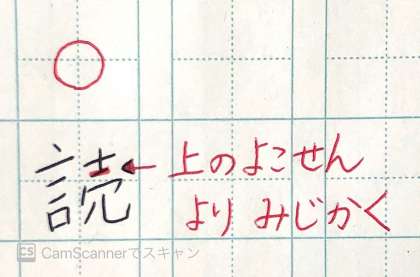 読 ← 上のよこせん
よりみじかく
CS CamScannerでスキャン